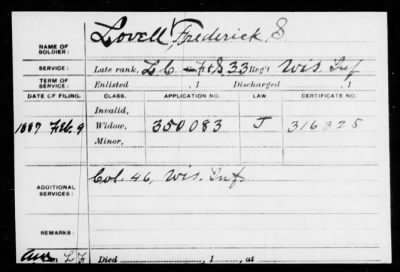 Lovell, Frederick S
NAME OF SOLDIER:
SERVICE: Late rank, L C F&S, 33 Reg't Wis. Inf
TERM OF SERVICE: Enlisted , 1 Discharged , 1
DATE OF FILING. CLASS. APPLICATION NO. LAW CERTIFICATE NO.
Invalid,
1887 Feb. 9 Widow, 350,083 J 316375
Minor,
ADDITIONAL SERVICES: Col. 46, Wis. Inf
REMARKS:
Died , 1 , at